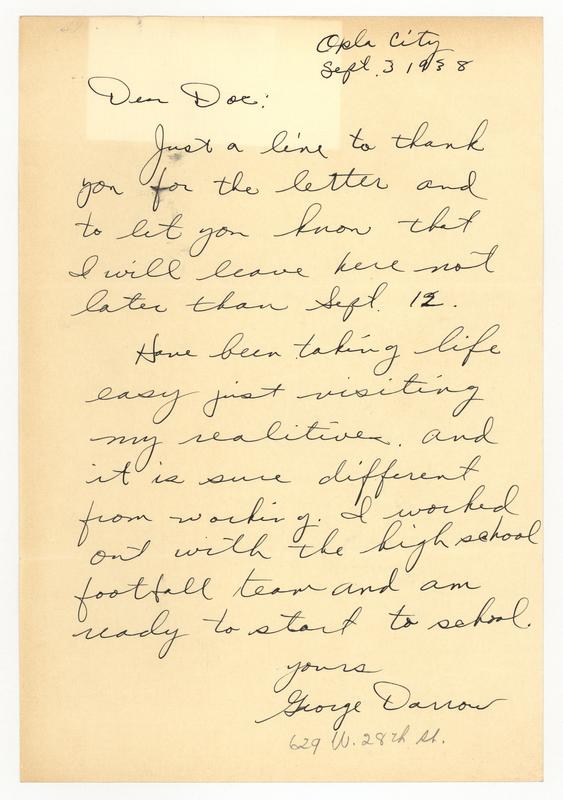 Opla City
Sept. 3 1938
Dear Doc:
Just a line to thank
you for the letter and
to let you know that
I will leave here not
later than Sept. 12.
Have been taking life
easy just visiting
my realitives. and
it is sure different
from working. I worked
out with the high school
football team and am
ready to start to school.
yours
George Darrow
629 W. 28th St.